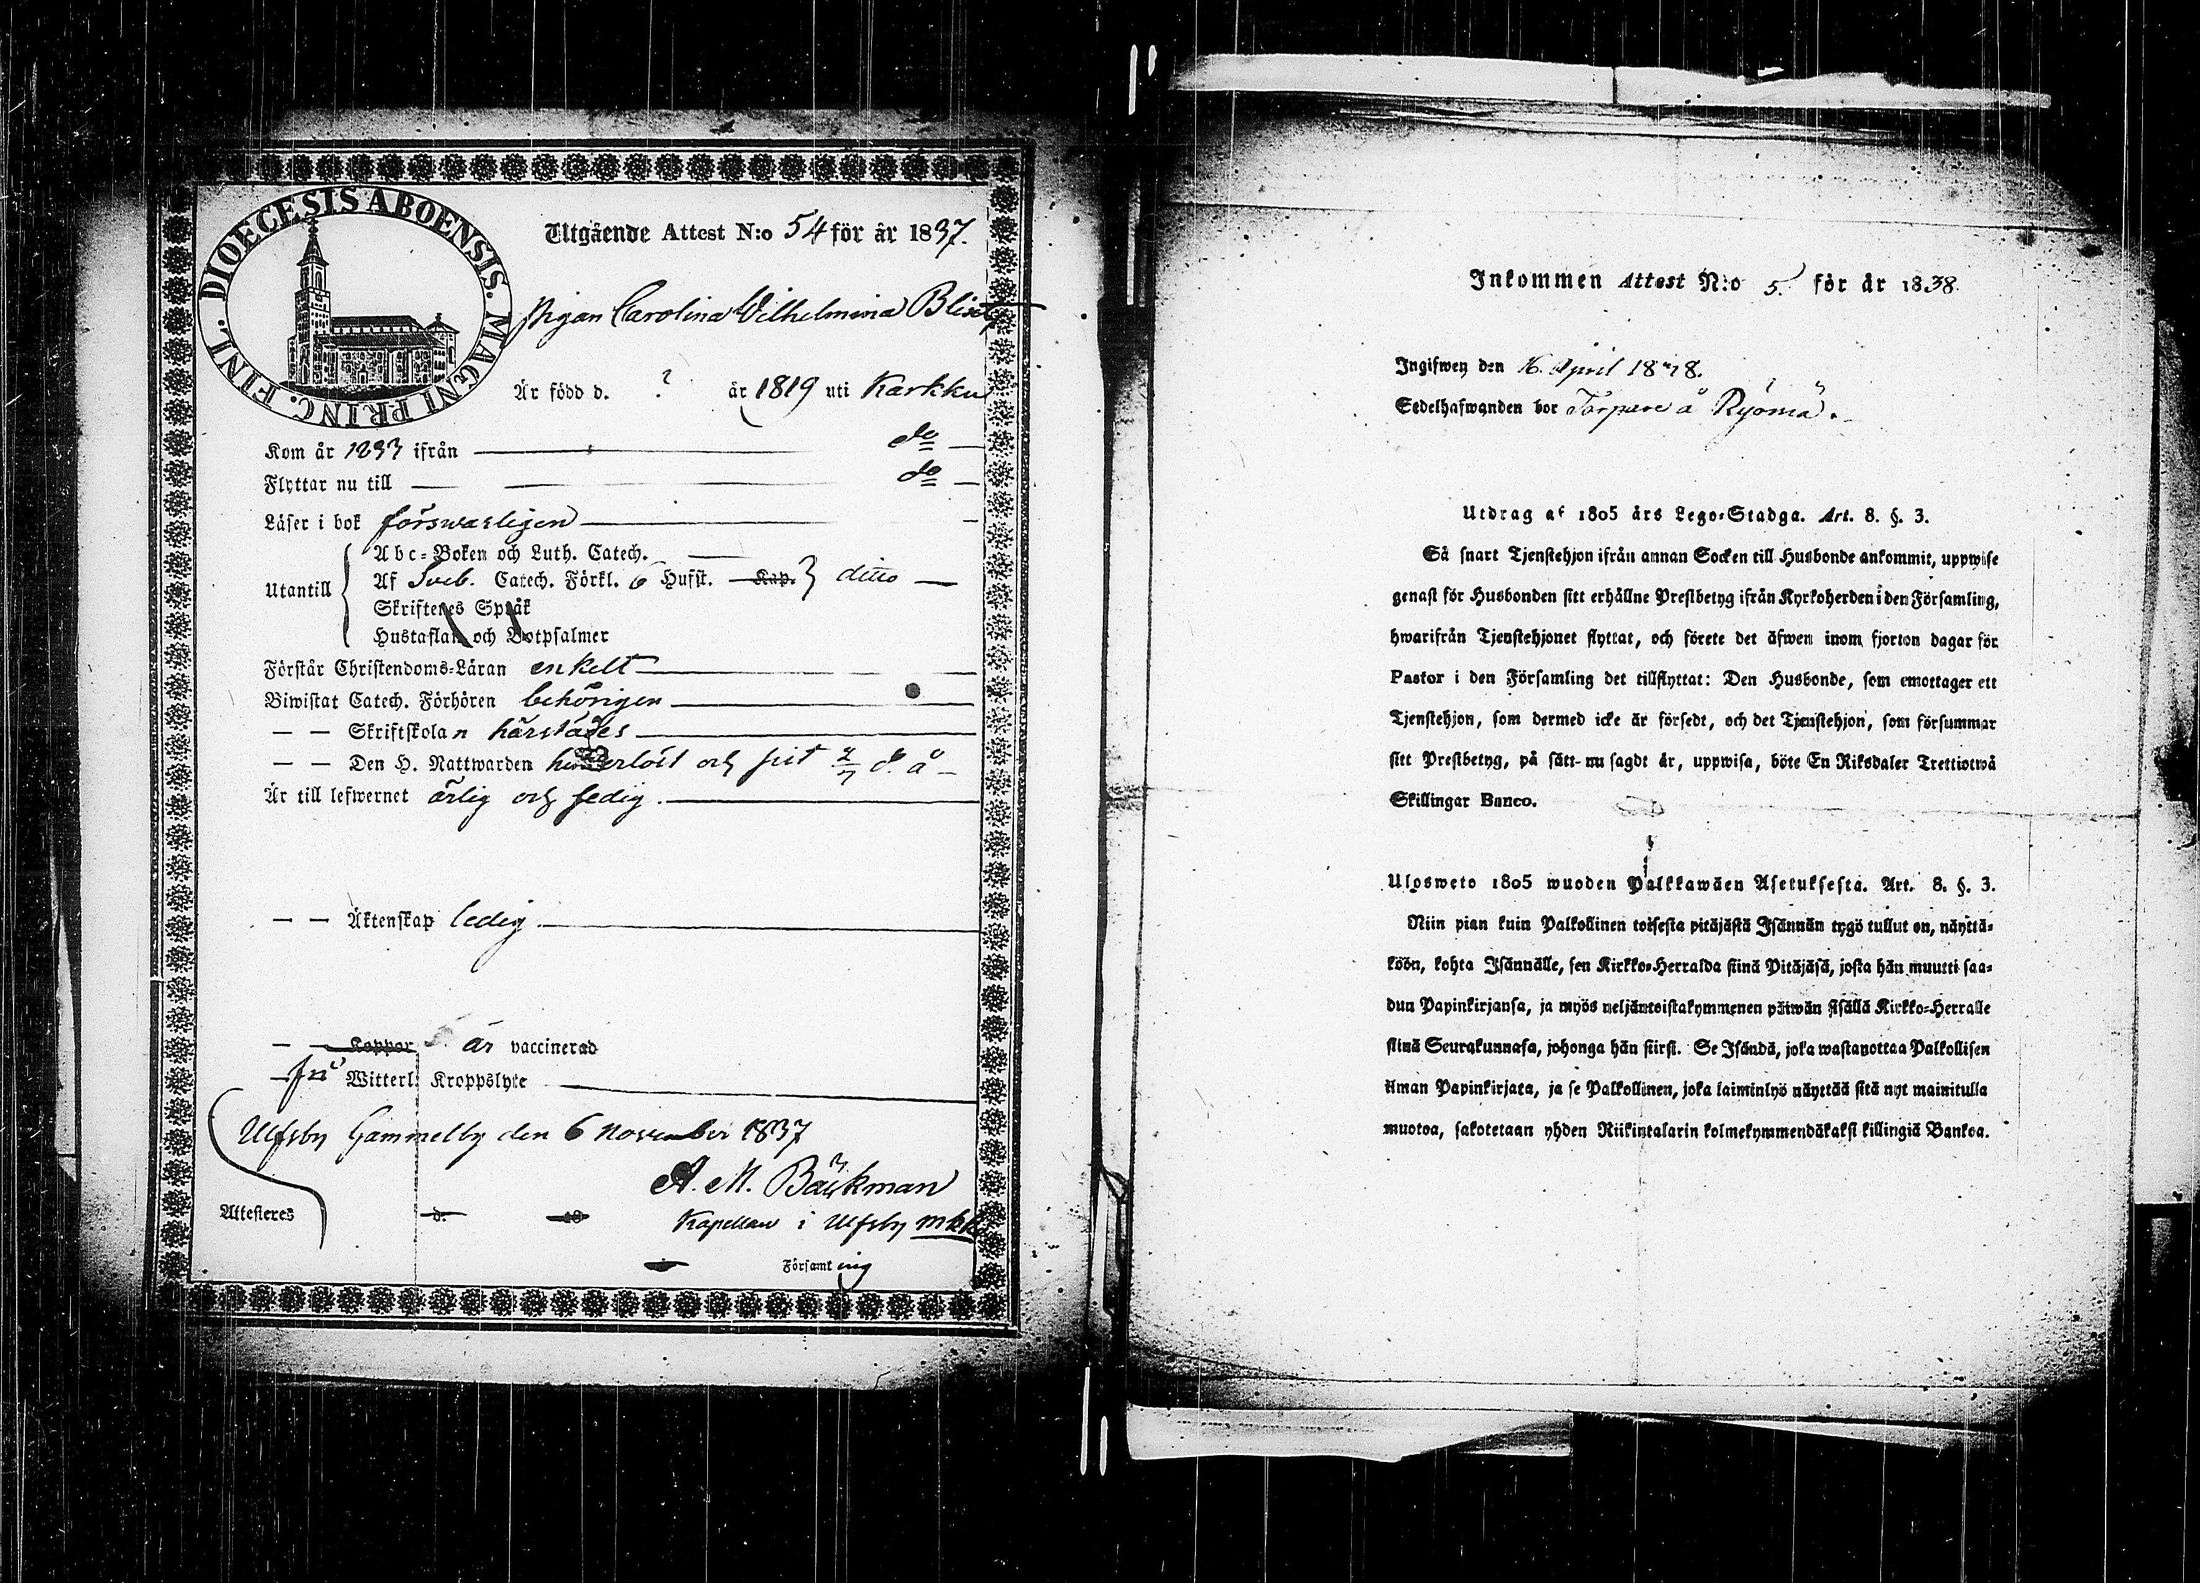 DIOECESIS ABOENSIS. MAGNI PRINC. FINL.
Utgående Attest N:o 54 för år 1837.
Pigan Carolina Wilhelmina
Är född d. ? år 1819 uti Karkku
Kom år 1833 ifrån do
Flyttar nu till do
Läser i bok förswarligen
Abc-Boken och Luth. Catech.
Utantill Af Sveb. Catech. Förkl. 6 Hufst. Kap. ditto
Skriftenes Språk
Hustaflan och Botpsalmer
Förstår Christendoms-Läran enkelt
Biwistat Catech. Förhören behörigen
— — Skriftskolan härstädes
— — Den H. Nattwarden och sist 2/7 d. å
Är till lefwernet ärlig och sedig.
— — Äktenskap ledig
— — Koppor är vaccinerad
fri Witterl. Kroppslyte
Ulfsby Gammelby den 6 November 1837
A. M. Bäckman
Attesteres d. 18 Kapellan i Ulfsby mkk
i Församling
Inkommen Attest N:o 5. för år 1838.
Ingifwen den 16. April 1838.
Sedelhafwanden bor Torpare å Ryömä.
Utdrag af 1805 års Lego-Stadga. Art. 8. §. 3.
Så snart Tjenstehjon ifrån annan Socken till Husbonde ankommit, uppwise
genast för Husbonden sitt erhållne Prestbetyg ifrån Kyrkoherden i den Församling,
hwarifrån Tjenstehjonet flyttat, och förete det äfwen inom fjorton dagar för
Pastor i den Församling det tillflyttat: Den Husbonde, som emottager ett
Tjenstehjon, som dermed icke är försedt, och det Tjenstehjon, som försummar
sitt Prestbetyg, på sätt nu sagdt är, uppwisa, böte En Riksdaler Trettiotwå
Skillingar Banco.
Ulosweto 1805 wuoden Palkkawäen Asetuksesta. Art. 8. §. 3.
Niin pian kuin Palkollinen toisesta pitäjästä Isännän tygö tullut on, näyttä-
köön, kohta Isännälle, sen Kirkko-Herralda siinä Pitäjäsä, josta hän muutti saa-
dun Papinkirjansa, ja myös neljäntoistakymmenen päiwän sisällä Kirkko-Herralle
siinä Seurakunnasa, johonga hän siirsi. Se Isändä, joka wastanottaa Palkollisen
ilman Papinkirjata, ja se Palkollinen, joka laiminlyö näyttää sitä nyt mainitulla
muotoa, sakotetaan yhden Riikintalarin kolmekymmendäkaksi killingiä Bankoa.